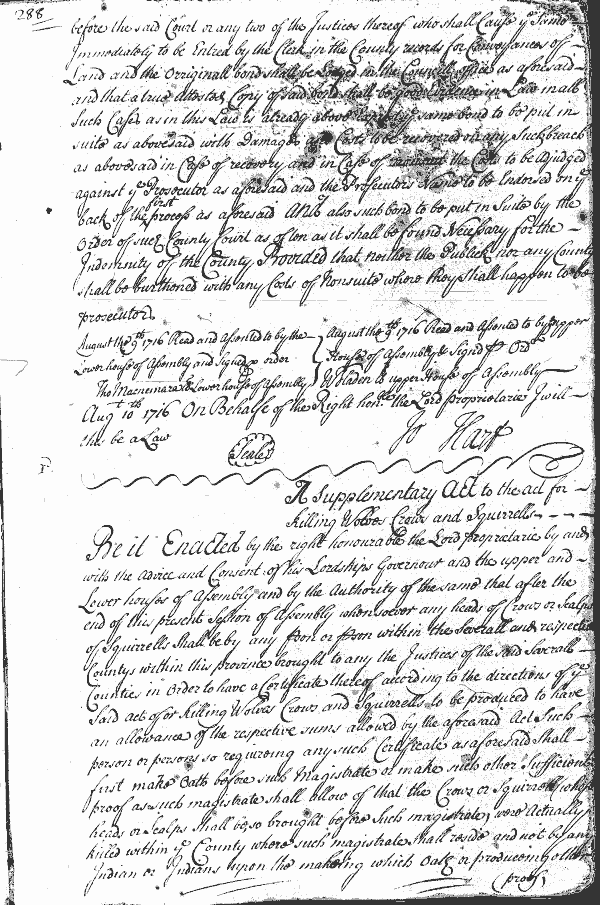 288
before the said Court or any two of the Justices thereof who shall Cause ye Same
Immediately to be Entred by the Clerk in the County records for Conveyances of
Land and the Originall bond shall be Lodged in the Councill office as aforesaid
and that a true attested Copy of said bond shall be good Evidence in Law in all
Such Cases as in this Law is already above same bond to be put in
suite as abovesaid with Damages Costs to be recovered on any Such breach
as abovesaid in Case of recovery and in Case of the Costs to be Adjudged
against ye Prosecutor as aforesaid and the Prosecutors Name to be Endorsed on ye
first
back of the process as aforesaid And also such bond to be put in Suite by the
Order of such County Court as often as it shall be found Necessary for the
Indemnity of the County Provided that neither the Publick nor any County
shall be burthened with any Costs of Nonsuite where they shall happen to be
prosecutor
August the 9th 1716 Read and Assented to by the
Lower house of Assembly and Signed p order
Tho Macnemara Cl Lower house of Assembly
August the 9th 1716 Read and Assented to by upper
House of Assembly & Signd p Ordr
W Bladen Cl upper House of Assembly
Augt 10th 1716 On Behalfe of the Right honble the Lord Proprietarie I will
this be a Law
Seale
Jo Hart
A Supplementary Act to the act for
killing Wolves Crows and Squirrells
Be it Enacted by the right honourable the Lord Proprietarie by and
with the Advice and Consent of his Lordships Governour and the upper and
Lower houses of Assembly and by the Authority of the same that after the
end of this present Session of Assembly whensoever any heads of Crows or Scalps
of Squirrells Shall be by any pson or psons within the Severall and respective
Countys within this province brought to any the Justices of the said Severall
Counties in Order to have a Certificate thereof according to the directions of ye
Said act of or killing Wolves Crows and Squirrells to be produced to have
an allowance of the respective sums allowed by the aforesaid Act Such
person or persons so requireing any such Certificate as aforesaid Shall
first make Oath before such Magistrate or make such other Sufficient
proof as such magistrate shall allow of that the Crows or Squirrells whose
heads or Scalps shall be so brought before Such magistrate were Actually
killed within ye County where such magistrate shall reside and not by any
Indian or Indians upon the makeing which Oath or produceing other
proof